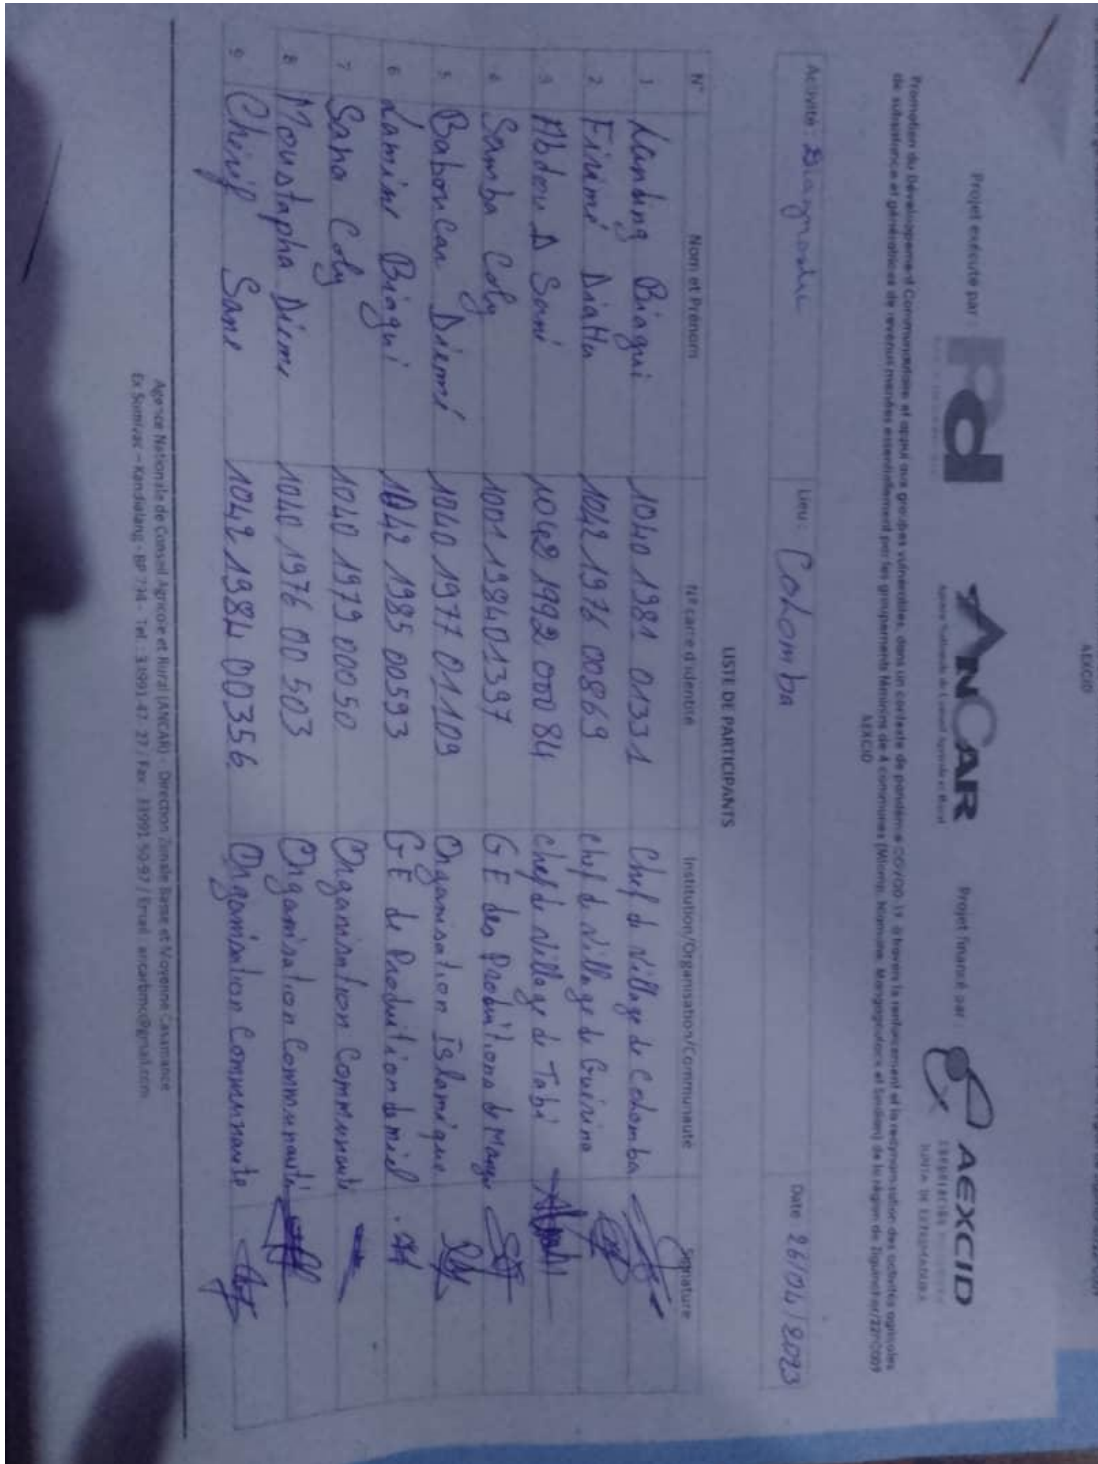 AEXCID
Projet exécuté par :
Pd
ANCAR
Agence Nationale de Conseil Agricole et Rural
Projet financé par :
AEXCID
JUNTA DE EXTREMADURA
Promotion du Développement Communautaire et appui aux groupes vulnérables, dans un contexte de pandémie COVOD 19, à travers le renforcement et la redynamisation des activités agricoles
de subsistance et génératrices de revenus menées essentiellement par les groupements féminins de 4 communes (Mlomp, Niamone, Mangagoulack et Sindian) de la région de Ziguinchor/22PC009
AEXCID
Activité : Diagnostic
Lieu : Cohomba
Date 26/04/2023
LISTE DE PARTICIPANTS
N° Nom et Prénom N° carte d'identité Institution/Organisation/Communauté Signature
1 Landing Biagui 1040 1981 01331 Chef de village de Cohomba
2 Firimé Diatta 1042 1976 00869 chef de village de Guérina
3 Abdou D Sané 1042 1992 00084 chef de village de Tabi
4 Samba Coly 1001 1984 01397 GE des Productions de
5 Baboucar Diémé 1040 1977 01109 Organisation Islamique
6 Lamine Biagui 1042 1985 00593 GE de Production de miel
7 Sana Coly 1040 1979 00050 Organisation Communauté
8 Moustapha Diémé 1040 1976 00 503 Organisation Communauté
9 Chérif Sane 1042 1984 00356 Organisation Communauté
Agence Nationale de Conseil Agricole et Rural (ANCAR) - Direction Zonale Basse et Moyenne Casamance
Ex Somivac – Kandialang - BP 734 - Tel : 33991-47- 27 / Fax : 33991-50-97 / Email : ancarbmc@gmail.com